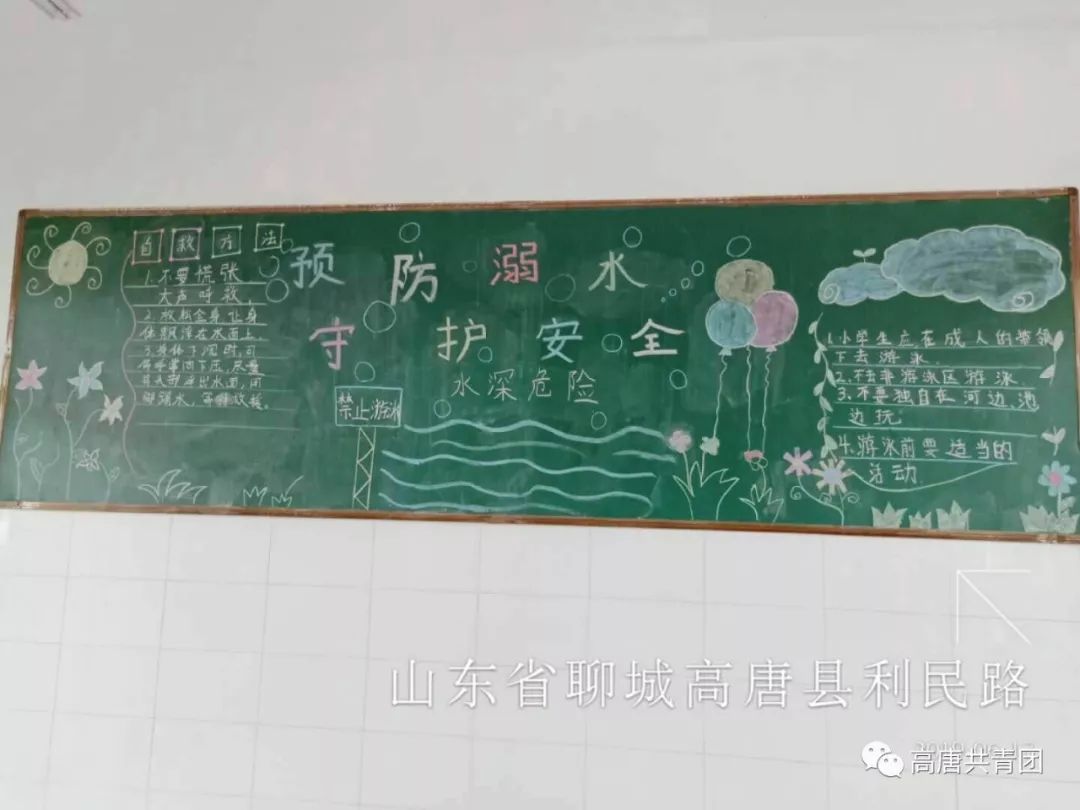 自救方法
1.不要慌张
大声呼救
2.放松全身,让身
体飘浮在水面上.
3.身体下沉时,可
将手掌向下压,尽量
将头部浮出水面,用
脚踢水,等待救援.
预防溺水
守护安全
水深危险
禁止游泳
1.小学生应在成人的带领
下去游泳
2.不在非游泳区游泳
3.不要独自在河边,池
边玩
4.游泳前要适当的
活动.
山东省聊城高唐县利民路
高唐共青团